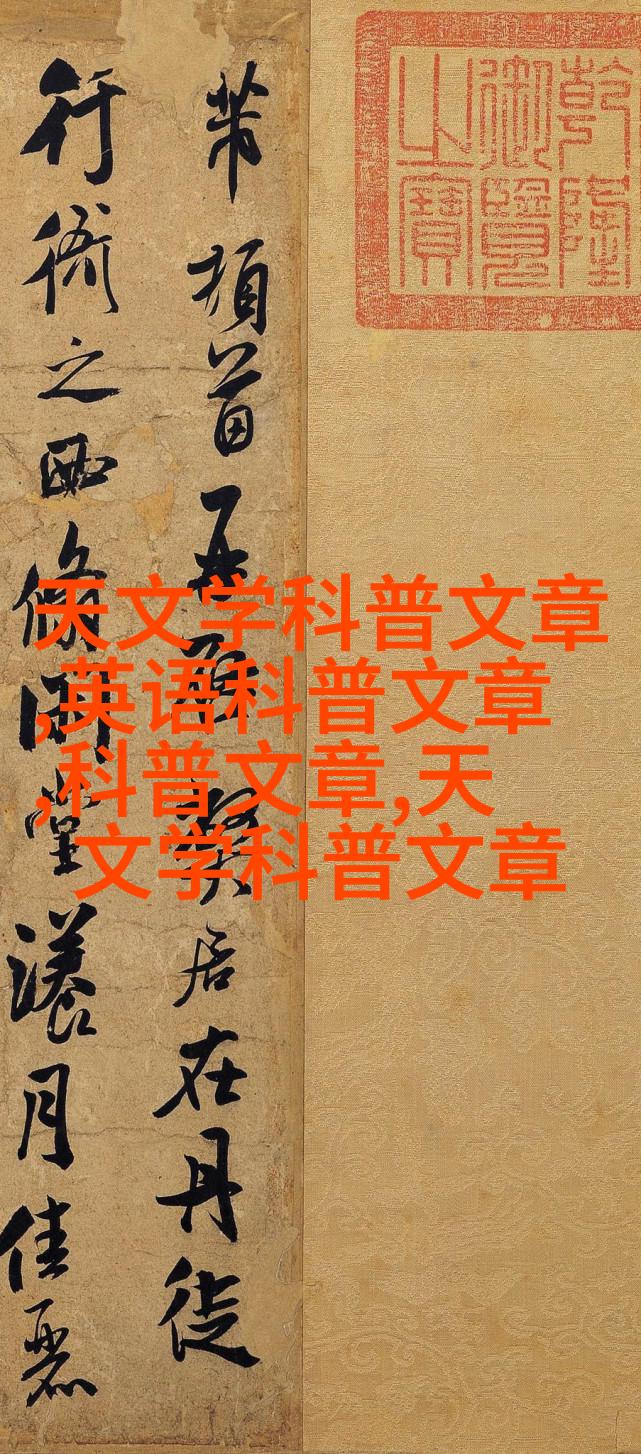 天文学科普文章
,英语科普文章
,科普文章,天
文学科普文章
乾隆
御覽
之寶
芾頓首再啓弊居在丹徒
行衙之西翛閑堂漾月佳麗